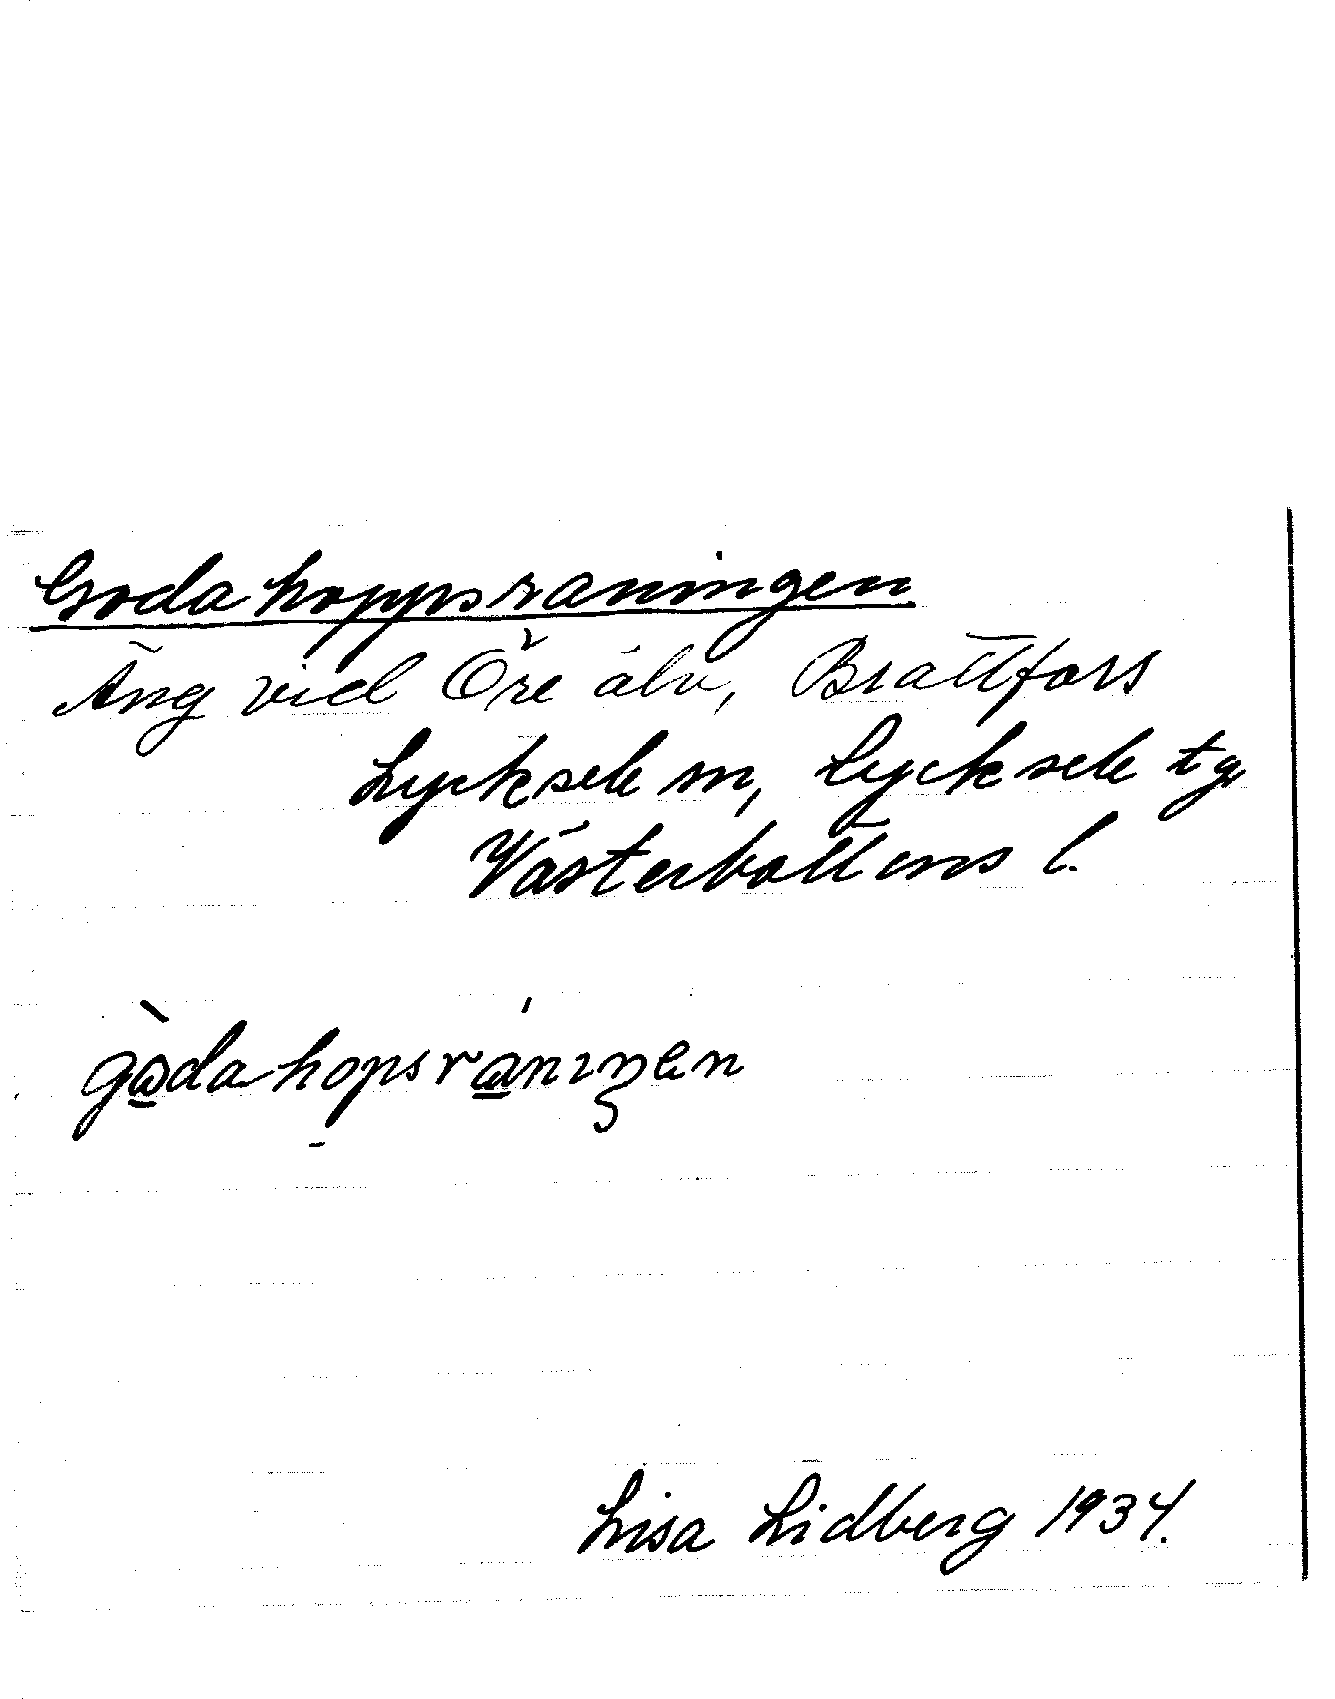 Godahoppsraningen
Äng vid Öre älv, Brattfors
Lycksele sn, Lycksele tg
Västerbottens l.
gòda hopsránıŋen
Lisa Lidberg 1934.